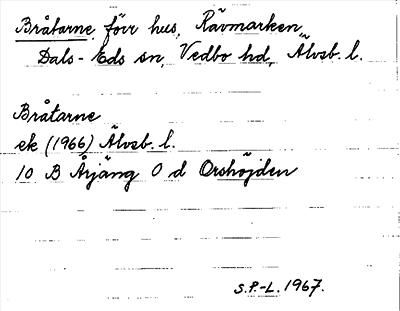 Bråtarne, förr hus, Rävmarken,
Dals-Eds sn, Vedbo hd, Älvsb. l.
Bråtarne
ek (1966) Älvsb. l.
10 B Årjäng O d Orshöjden
S.P.-L. 1967.